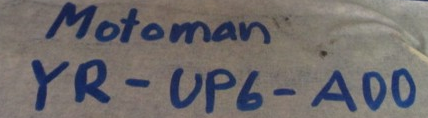 Motoman
YR-UP6-A00